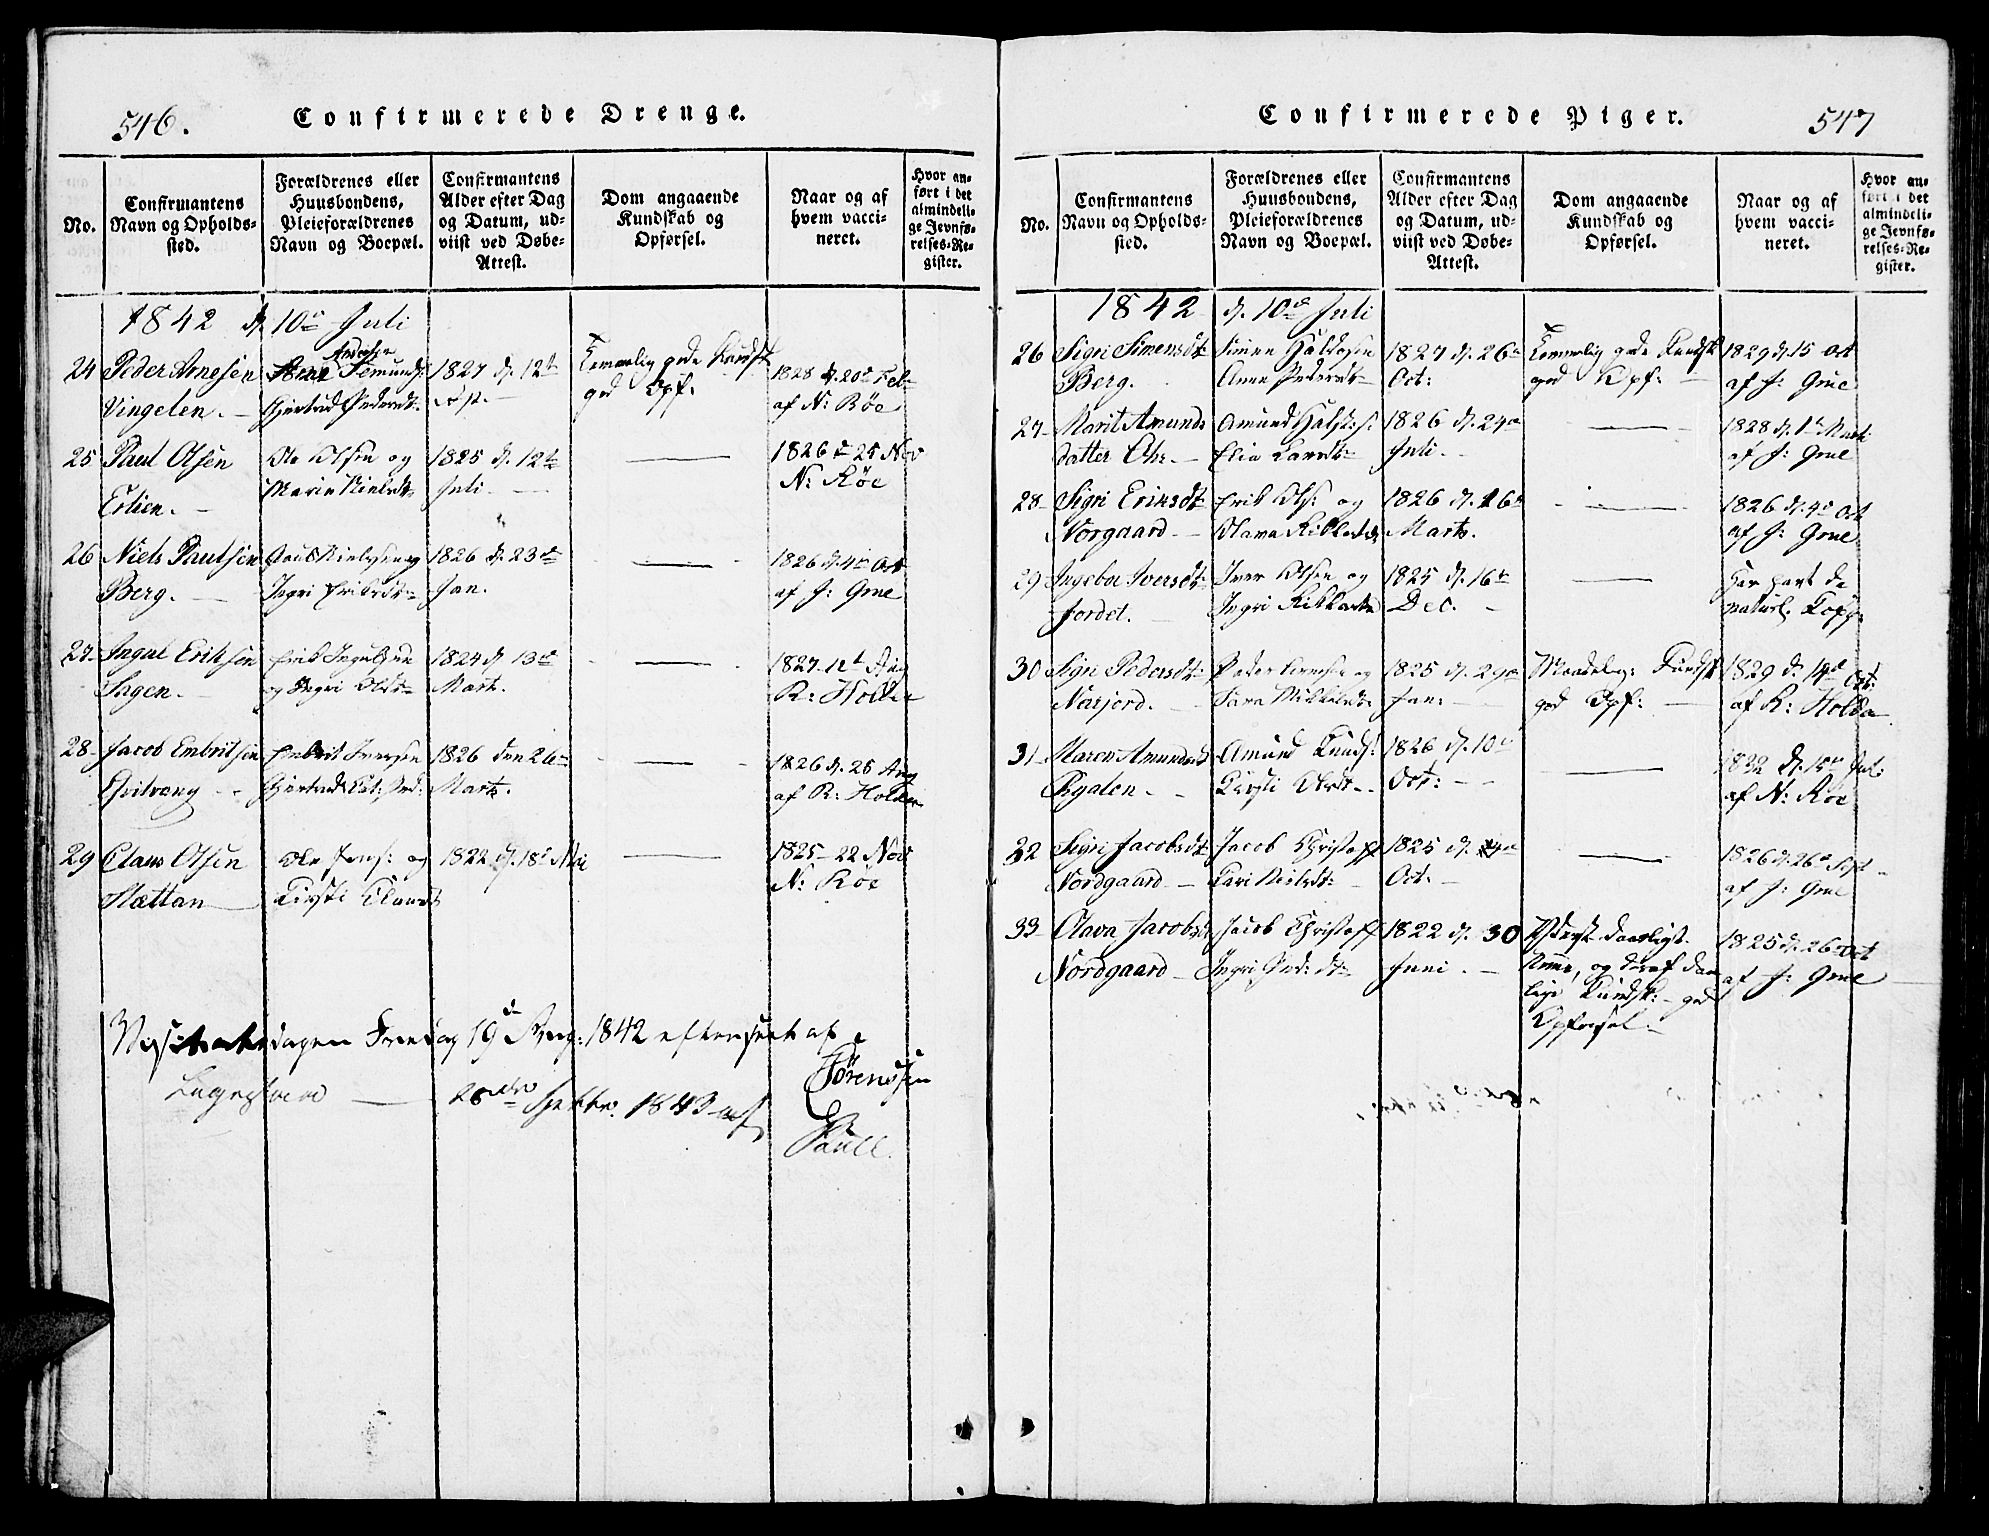 546.
Confirmerede Drenge.
No.
Confirmantens
Navn og Opholds-
sted.
Forældrenes eller
Huusbondens,
Pleieforældrenes
Navn og Boepæl.
Confirmantens
Alder efter Dag
og Datum, ud-
viist ved Døbe-
Attest.
Dom angaaende
Kundskab og
Opførsel.
Naar og af
hvem vacci-
neret.
Hvor an-
ført i det
almindeli-
ge Jevnfø-
relses-Re-
gister.
1842 d. 10de Juli
24 Peder Arnesen
Vingelen.
Andersen
Arne Femunds:
Gjertrud Pedersdt:
1827 d. 12te
Temmelig gode Kundsk
god Opf:
1828 d. 20de Feb
af N: Røe
25 Paul Olsen
Erlien.
Ole Olsen og
Marie Nielsdt:
1825 d. 12te
Juli.
1826 25 Nov
N: Røe
26 Niels Paulsen
Berg.
Paul Nielsen og
Ingri Eriksdt:
1826 d. 23de
Jan.
1826 d. 4de Oct
af J: Grue
27 Ingul Eriksen
Sagen.
Erik Ingulsen
og Ingri Olsdt:
1824 d. 13de
Marts.
1827. 12te Aug
R: Holden
28 Jacob Embritsen
Qvitvang
Embrit Iversen
Gjertrud
1826 den 26de
Marts.
1826 d. 25 Aug
af R: Holden
29 Claus Olsen
Slættan
Ole Jens: og
Kirsti Clausdt
1822 d. 18de Mai
1825 - 22 Nov
N: Røe
Visitatsdagen Fredag 19de Aug: 1842 efterseet af
Sørenssen
28de Septbr. 1843 af
547
Confirmerede Piger.
No.
Confirmantens
Navn og Opholds-
sted.
Forældrenes eller
Huusbondens,
Pleieforældrenes
Navn og Boepæl.
Confirmantens
Alder efter Dag
og Datum, ud-
viist ved Døbe-
Attest.
Dom angaaende
Kundskab og
Opførsel.
Naar og af
hvem vacci-
neret.
Hvor an-
ført i det
almindeli-
ge Jevnfø-
relses-Re-
gister.
1842 d. 10de Juli
26 Sigri Simensdt:
Berg.
Simen Haldosen
Anne Pedersdt:
1827 d. 26de
Oct:
Temmelig gode Kundsk
god Opf:
1829 d. 15 Oct
af J: Grue
27 Marit Amunds
datter
Amund
1826 d. 24de
Juli.
1828 d. 1te Marts
af J: Grue
28 Sigri Eriksdt:
Norgaard
Erik Ols: og
Olava
1826 d. 16de
Marts.
1826 d. 4de Oct
af J: Grue
29 Ingebor Iversdt:
Jordet.
Iver Olsen og
Ingri
1825 d. 16de
Dec.
Har havt de
naturl. Kopp
30 Sigri Pedersdt:
Nosjord.
Peder Arnesen og
Sara Mikkelsdt:
1825 d. 29de
Jan:
Maadelig: Kundsk
god Opf:
1829 d. 14de Oct:
af R: Holden
31 Maren Amundsdt
Rygalen
Amund Knuds:
Kirsti Olsdt
1826 d. 10de
Oct:
1832 d. 15de Jul:
af N: Røe
32 Sigri Jacobsdt:
Nordgaard
Jacob Christoff
Kari Nielsdt:
1825 d.
Oct:
1826 d. 26de Sept
af J: Grue
33 Olava Jacobsdt
Nordgaard
Jacob Christoff
Ingri Ped: dt:
1822 d. 30
Juni.
Yderst daarligt
Nemme, og deraf daar
lige Kundsk: god
Opførsel.
1825 d. 26de Oct
af J: Grue